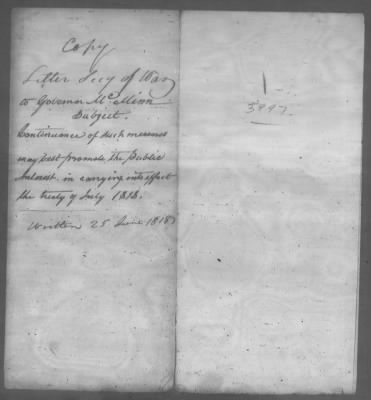 Copy
Letter Secy of War
to Governor McMinn
Subject.
Continuance of such measures
may best promote the Public
Interest. in carrying into effect
the treaty of July 1818.
Written 25 June 1818
1
3997